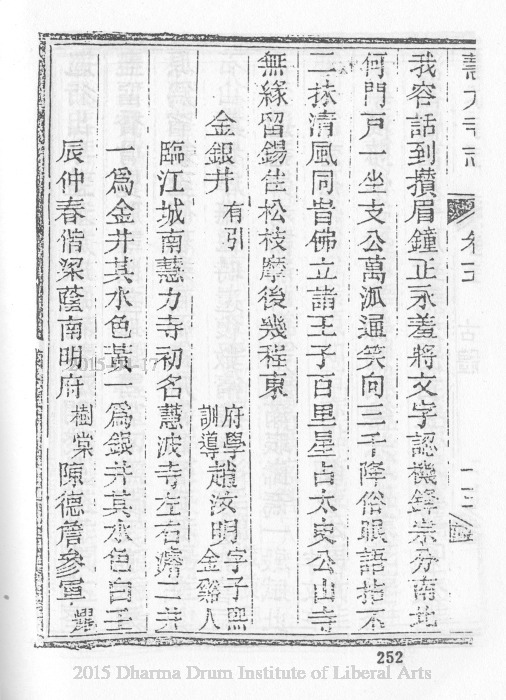 慧力寺志 卷五
我容話到攢眉鐘正永羞將文字認機鋒宗分南北
何門戶一坐支公萬派通笑向三千降俗眼語拈不
二抹清風同昔佛立諸王子百里星占太史公出寺
無緣留錫住松枝摩後幾程東
金銀井 有引 府學訓導趙汝明 字子熙金谿人
臨江城南慧力寺初名慧波寺左右濬二井
一爲金井其水色黃一爲銀井其水色白壬
辰仲春偕梁蔭南明府 樹棠 陳德詹參軍
252
2015 Dharma Drum Institute of Liberal Arts